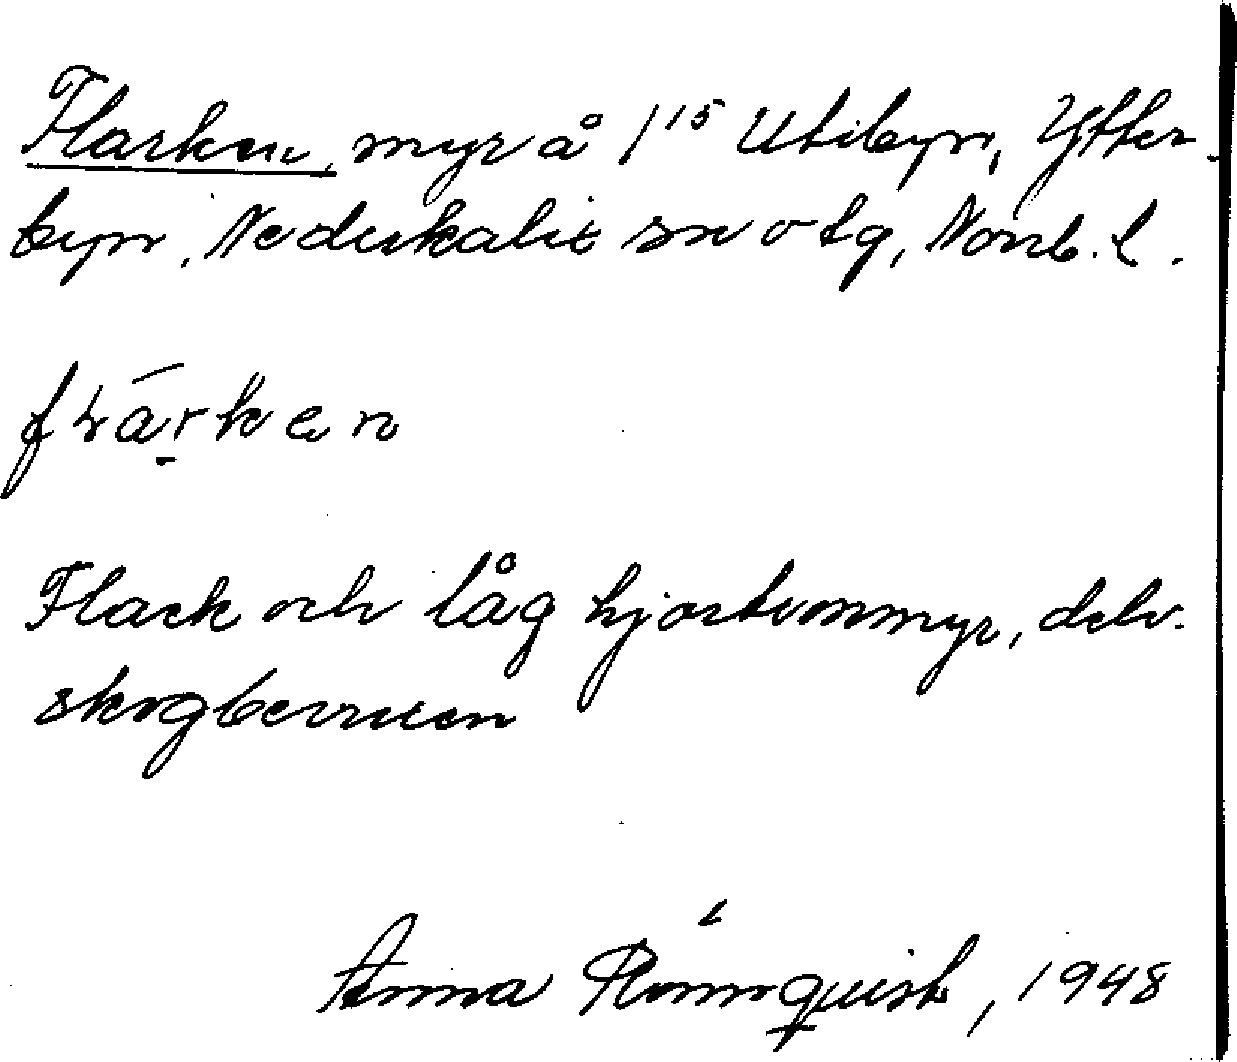 Flarken, myr å 1¹⁵ Utibyn, Ytter-
byn, Nederkalix sn o tg, Norrb. l.
flàrken
Flack och låg hjortronmyr, delv.
skogbevuxen
Anna Rönnquist, 1948